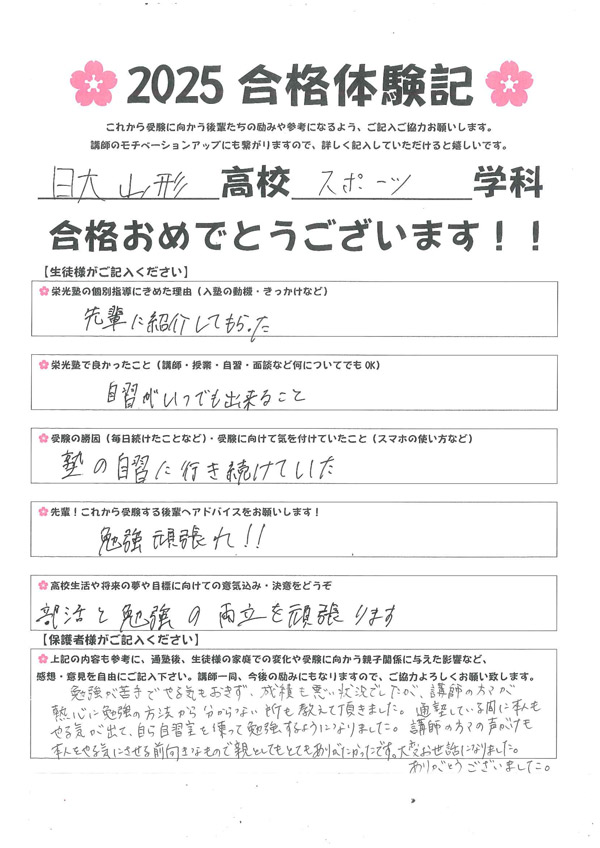 2025 合格体験記
これから受験に向かう後輩たちの励みや参考になるよう、ご記入ご協力お願いします。
講師のモチベーションアップにも繋がりますので、詳しく記入していただけると嬉しいです。
日大山形 高校 スポーツ 学科
合格おめでとうございます！！
【生徒様がご記入ください】
栄光塾の個別指導にきめた理由（入塾の動機・きっかけなど）
先輩に紹介してもらった
栄光塾で良かったこと（講師・授業・自習・面談など何についてでもOK）
自習がいつでも出来ること
受験の勝因（毎日続けたことなど）・受験に向けて気を付けていたこと（スマホの使い方など）
塾の自習に行き続けていた
先輩！これから受験する後輩へアドバイスをお願いします！
勉強頑張れ!!
高校生活や将来の夢や目標に向けての意気込み・決意をどうぞ
部活と勉強の両立を頑張ります
【保護者様がご記入ください】
上記の内容も参考に、通塾後、生徒様の家庭での変化や受験に向かう親子関係に与えた影響など、
感想・意見を自由にご記入下さい。講師一同、今後の励みにもなりますので、ご協力よろしくお願い致します。
勉強が苦手でやる気もおきず、成績も悪い状況でしたが、講師の方々が
熱心に勉強の方法から分からない所も教えて頂きました。通塾している周に本人も
やる気が出て、自ら自習室を使って勉強するようになりました。講師の方々の声がけも
本人をやる気にさせる前向きなもので親としてもとてもありがたかったです。大変お世話になりました。
ありがとうございました。